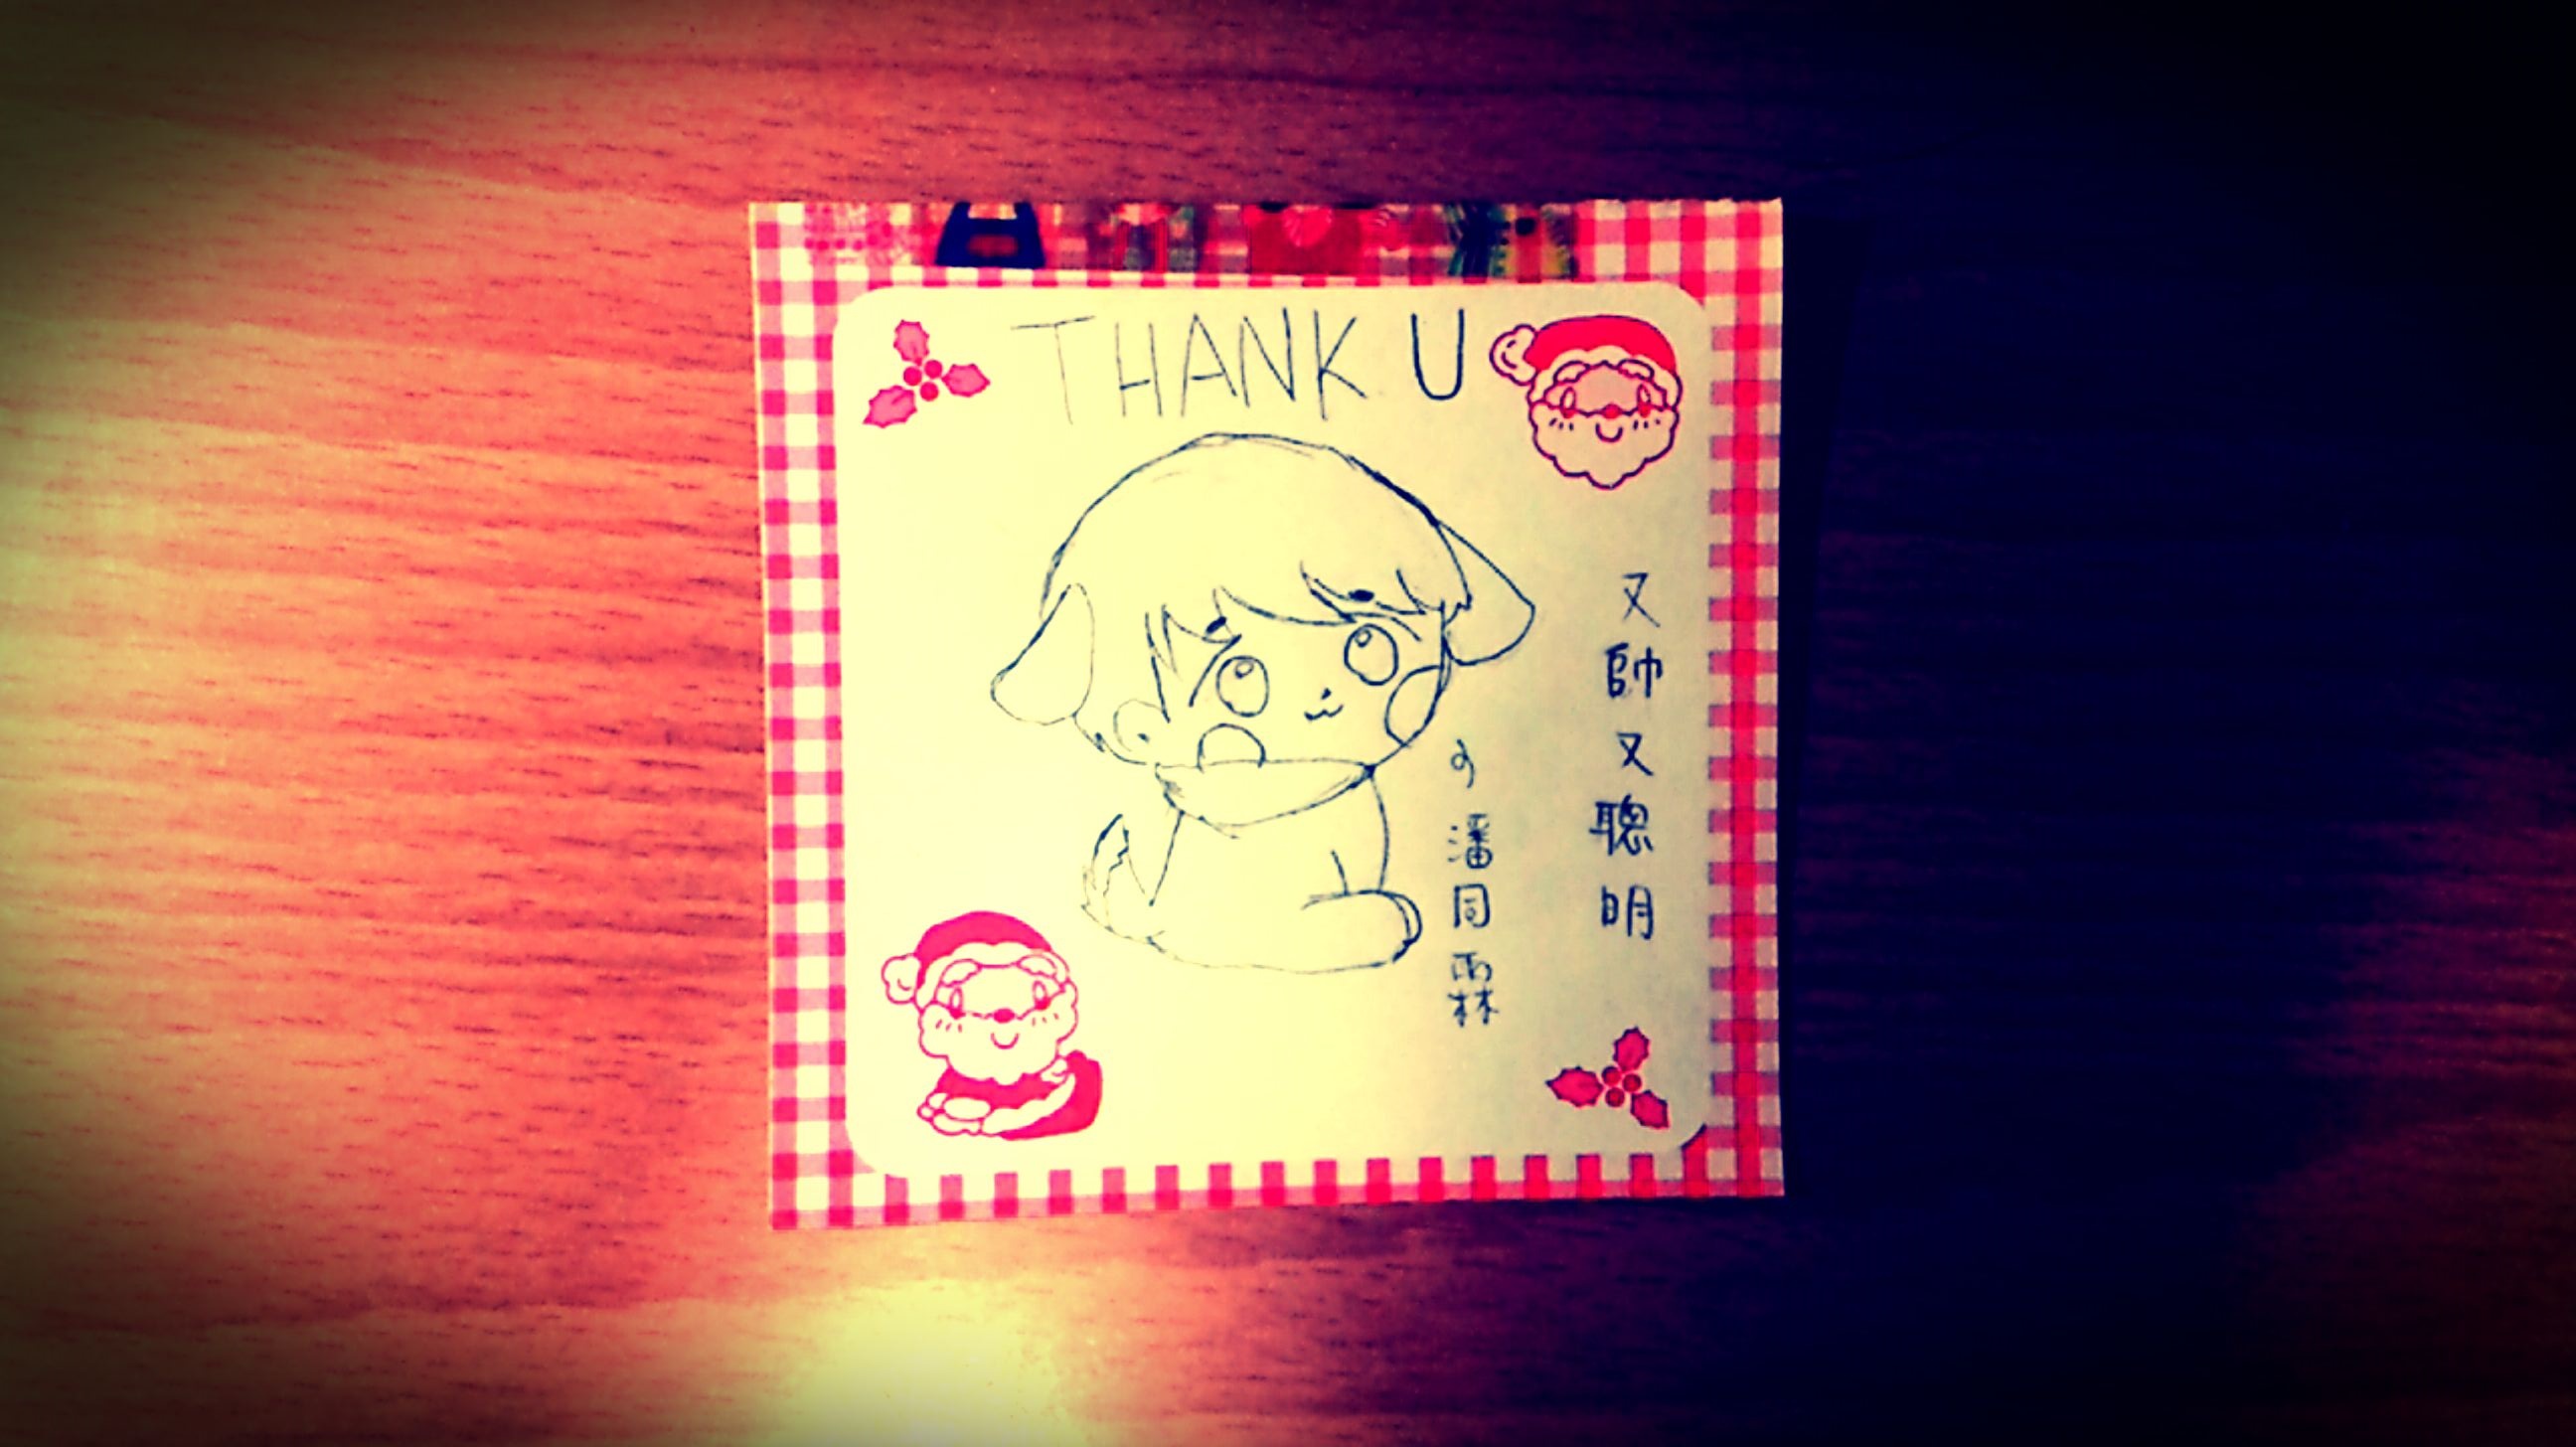 THANK U
又帥又聰明
的潘同霖